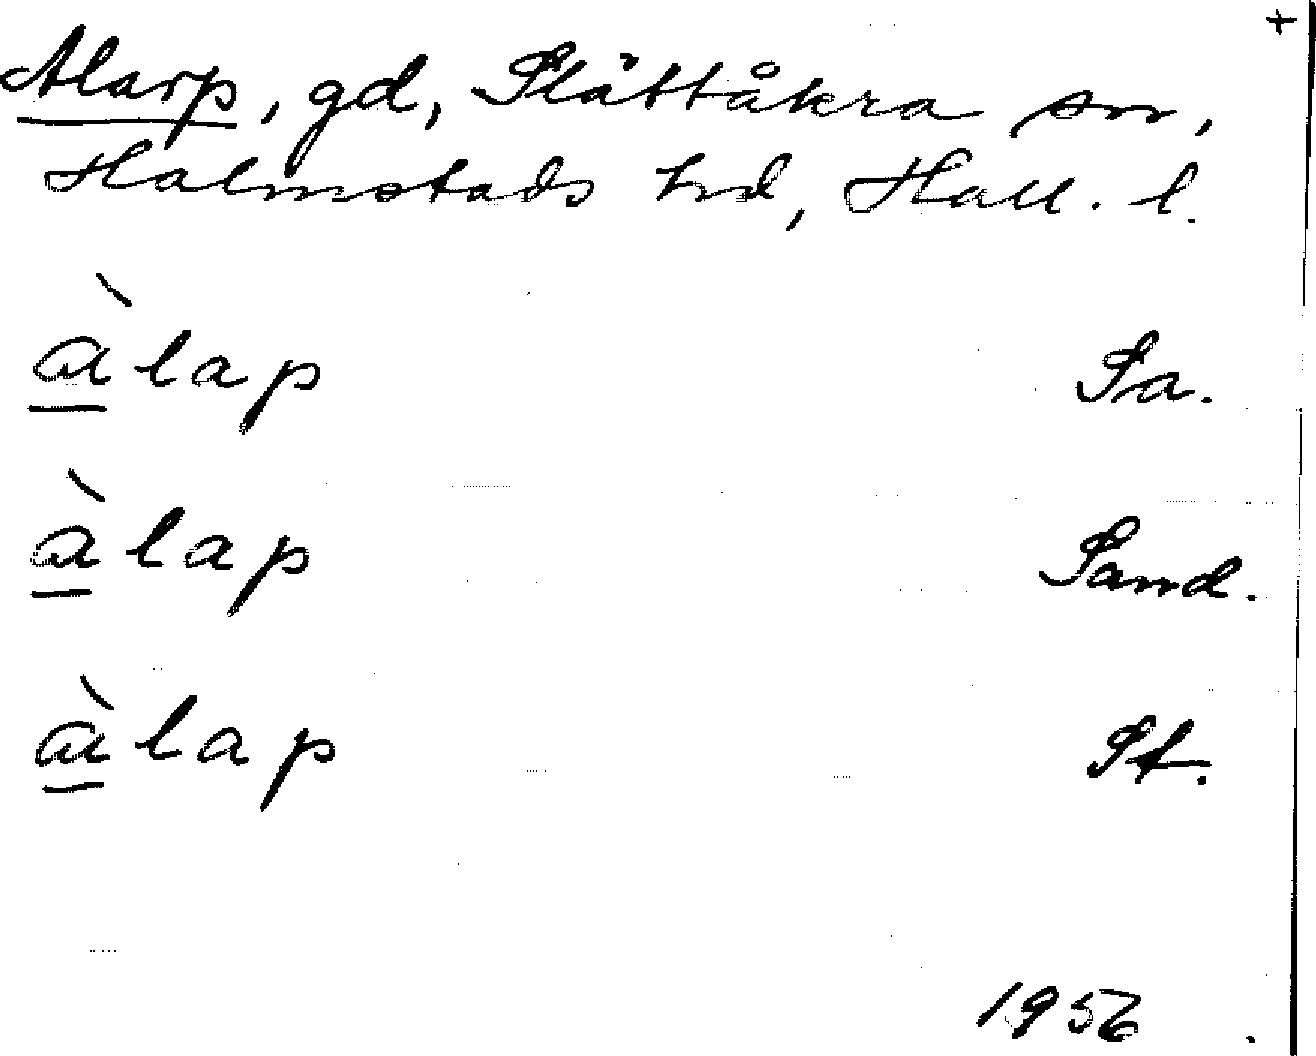 +
Alarp, gd, Slättåkra sn,
Halmstads hd, Hall. l.
àlap Sa.
àlap Sand.
àlap St.
1956